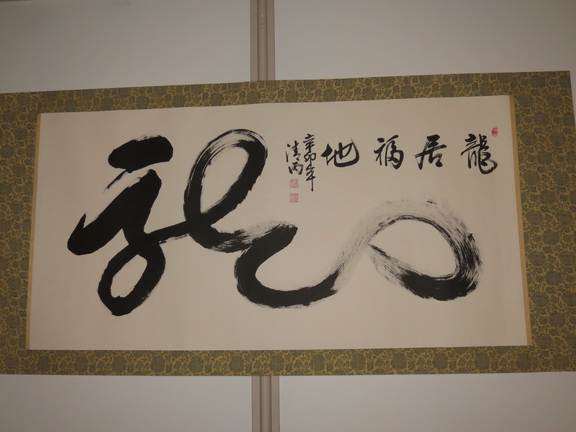 龍居福地
辛卯年
清丙
龍